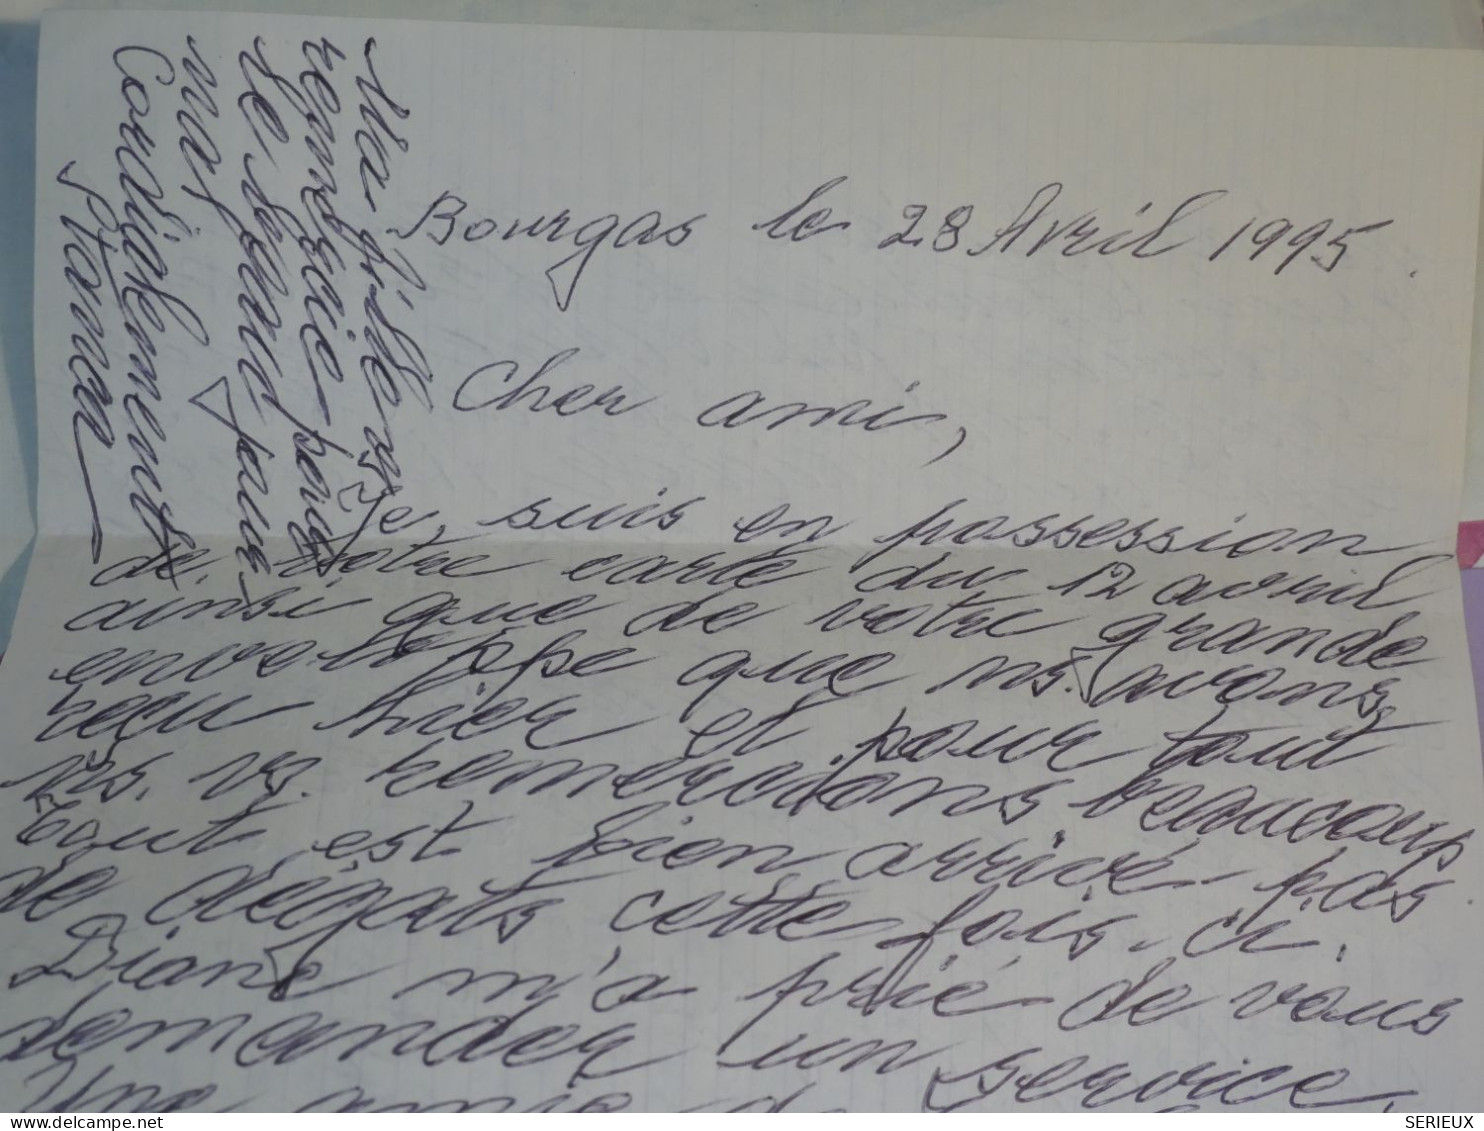 Bourgas le 28 Avril 1995.
Cher ami,
Je suis en possession
de votre carte du 12 avril
ainsi que de votre grande
enveloppe que ns. avons
reçu hier et pour tout
ns. vs. remercions beaucoup
Tout est bien arrivé pas
de dégats cette fois-ci.
Diane m'a prié de vous
demander un service.
Une amie de
remercie pour
le
Cordialement
SERIEUX